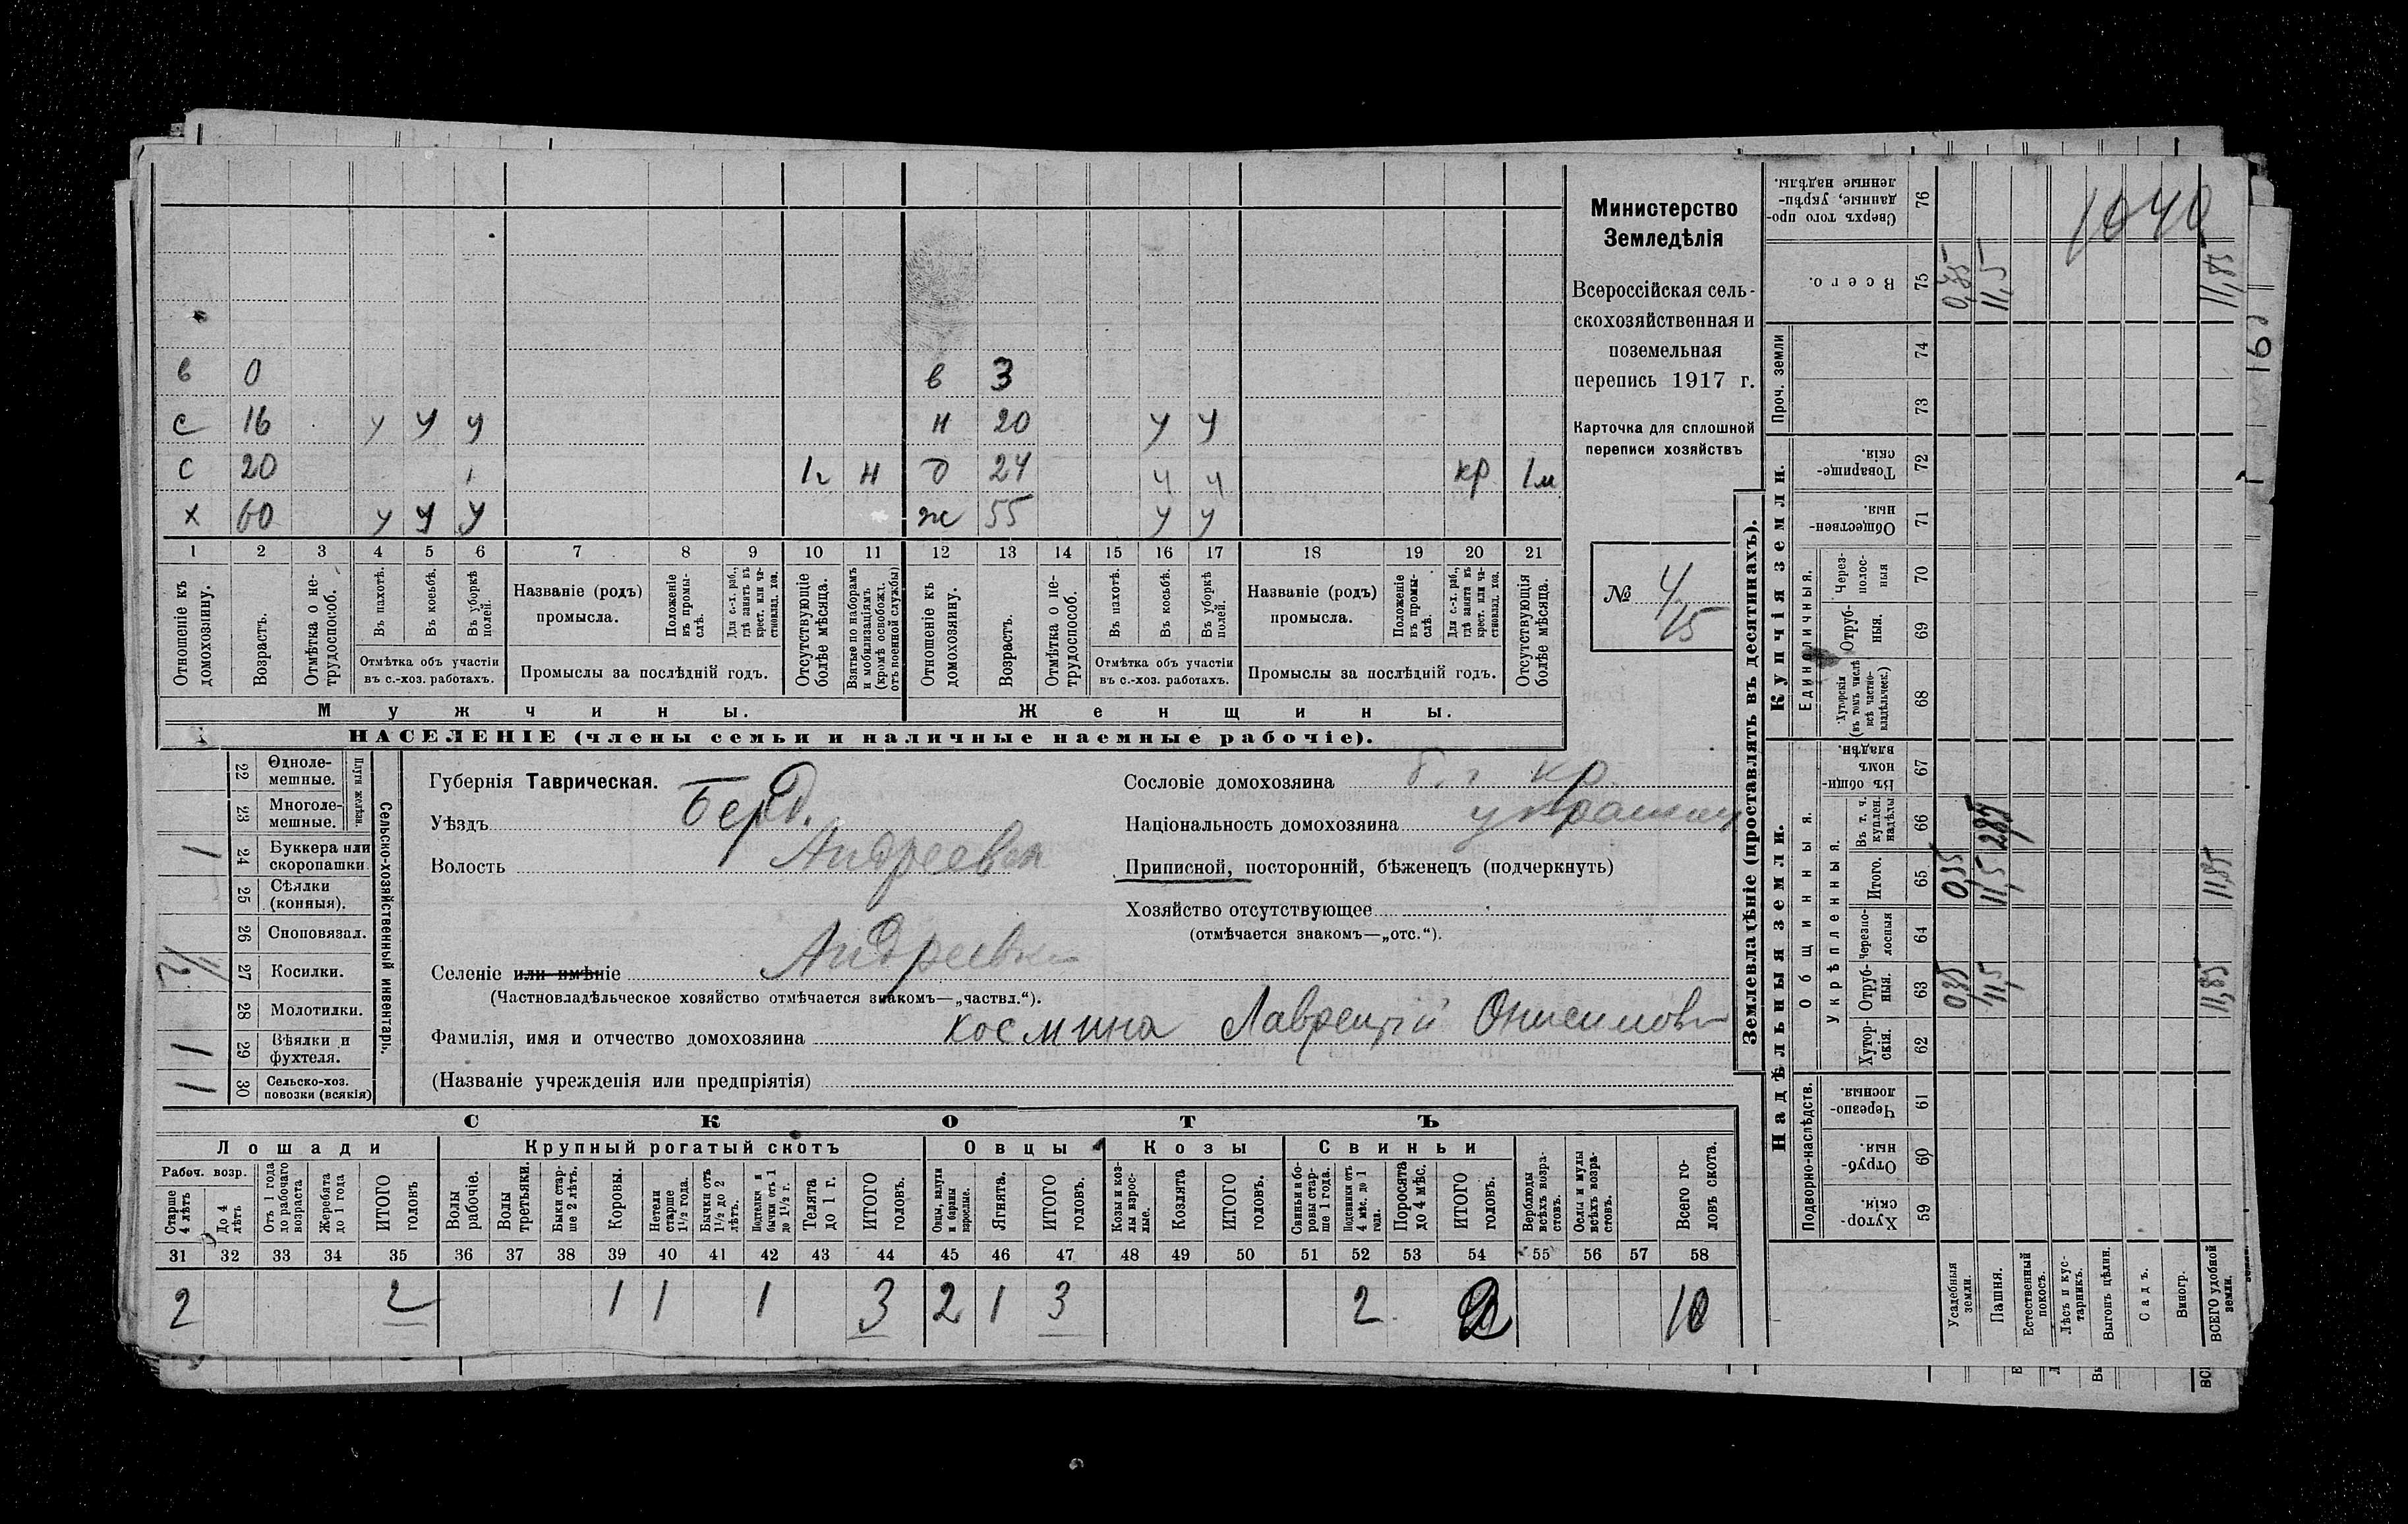 в 0 в 3
с 16 у у у н 20 у у
с 20 1г н д 24 у у кр 1м
х 60 у у у ж 55 у у
1 2 3 4 5 6 7 8 9 10 11 12 13 14 15 16 17 18 19 20 21
Отношеніе къ домохозяину.
Возрастъ.
Отмѣтка о не-трудоспособ.
Въ пахотѣ.
Въ косьбѣ.
Въ уборкѣ полей.
Отмѣтка объ участіи
въ с.-хоз. работахъ.
Названіе (родъ)
промысла.
Положеніе въ промы-слѣ.
Для с.-х. раб., гдѣ занятъ въ крест. или ча-стновлад. хоз.
Промыслы за послѣдній годъ.
Отсутствующіе болѣе мѣсяца.
Взятые по наборамъ и мобилизаціямъ (кромѣ освобожд. отъ военной службы)
Отношеніе къ домохозяину.
Возрастъ.
Отмѣтка о не-трудоспособ.
Въ пахотѣ.
Въ косьбѣ.
Въ уборкѣ полей.
Отмѣтка объ участіи
въ с.-хоз. работахъ.
Названіе (родъ)
промысла.
Положеніе въ промы-слѣ.
Для с.-х. раб., гдѣ занята въ крест. или ча-стновлад. хоз.
Промыслы за послѣдній годъ.
Отсутствующія болѣе мѣсяца.
Мужчины.
Женщины.
НАСЕЛЕНІЕ (члены семьи и наличные наемные рабочіе).
Министерство
Земледѣлія
Всероссійская сель-
скохозяйственная и
поземельная
перепись 1917 г.
Карточка для сплошной
переписи хозяйствъ
№ 4/15
Сельско-хозяйственный инвентарь.
Плуги желѣзн.
22 Одноле-мешные.
23 Многоле-мешные.
1 24 Буккера или скоропашки.
25 Сѣялки (конныя).
26 Сноповязал.
27 Косилки.
28 Молотилки.
1 29 Вѣялки и фухтеля.
1 30 Сельско-хоз. повозки (всякія)
Губернія Таврическая.
Уѣздъ Берд.
Волость Андреевка
Селеніе или имѣніе Андреевка
(Частновладѣльческое хозяйство отмѣчается знакомъ—„частвл.“).
Фамилія, имя и отчество домохозяина Космина Лаврентій Онисимов
(Названіе учрежденія или предпріятія)
Сословіе домохозяина кр.
Національность домохозяина
Приписной, посторонній, бѣженецъ (подчеркнуть)
Хозяйство отсутствующее
(отмѣчается знакомъ—„отс.“).
СКОТЪ
Лошади Крупный рогатый скотъ Овцы Козы Свиньи
Рабоч. возр.
Старше 4 лѣтъ
До 4 лѣтъ
Отъ 1 года до рабочаго возраста
Жеребята до 1 года
ИТОГО головъ
Волы рабочіе.
Волы третьяки.
Быки стар-ше 2 лѣтъ.
Коровы.
Нетели старше 1½ года.
Бычки отъ 1½ до 2 лѣтъ.
Подтелки и бычки отъ 1 до 1½ г.
Телята до 1 г.
ИТОГО головъ.
Овцы, валухи и бараны взрослые.
Ягнята.
ИТОГО головъ.
Козы и коз-лы взрос-лые.
Козлята
ИТОГО головъ.
Свиньи и бо-ровы стар-ше 1 года.
Подсвинки отъ 4 мѣс. до 1 года.
Поросята до 4 мѣс.
ИТОГО головъ.
Верблюды всѣхъ возра-стовъ.
Ослы и мулы всѣхъ возра-стовъ.
Всего го-ловъ скота.
31 32 33 34 35 36 37 38 39 40 41 42 43 44 45 46 47 48 49 50 51 52 53 54 55 56 57 58
2 2 1 1 1 3 2 1 3 2 2 10
Землевладѣніе (проставлять въ десятинахъ).
Надѣльныя земли.
Купчія земли.
Проч. земли
Подворно-наслѣдств.
Общинныя.
Укрѣпленныя.
Единоличныя.
Сверхъ того про-данные, укрѣп-ленные надѣлы. 76
Всего. 75 0,35 11,5 11,85
74
73
Товарище-скія. 72
Обществен-ныя. 71
Через-полос-ныя 70
Отруб-ныя. 69
Хуторскія (въ томъ числѣ всѣ частно-владѣльческ.) 68
Въ общи-номъ владѣн. 67
Въ т. ч. куплен. надѣлы 66
Итого. 65 0,35 11,5 11,85
Черезпо-лосныя 64
Отруб-ныя. 63 0,35 11,5 11,85
Хутор-скія. 62
Черезпо-лосныя. 61
Отруб-ныя. 60
Хутор-скія. 59
Усадебныя земли.
Пашня.
Естественный покосъ.
Лѣсъ и кус-тарникъ.
Выгонъ цѣлин.
Садъ.
Виногр.
ВСЕГО удобной земли.
1040
169